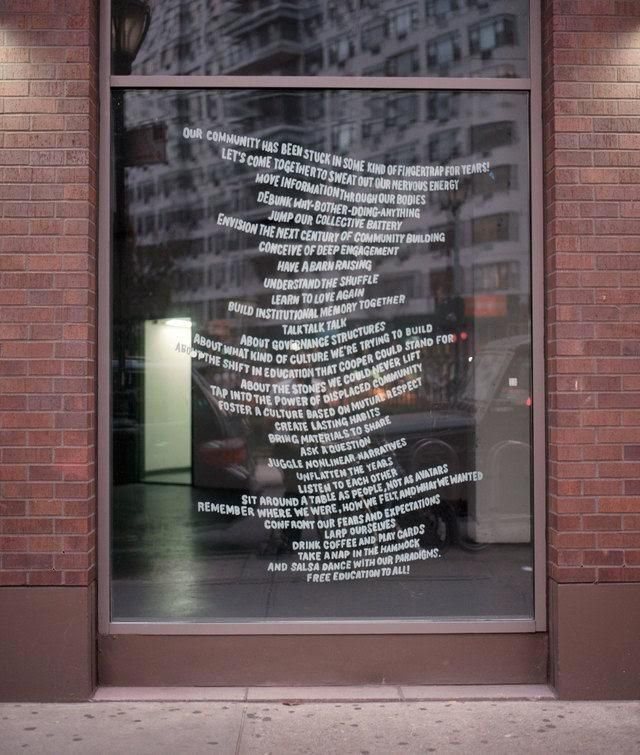 OUR COMMUNITY HAS BEEN STUCK IN SOME KIND OF FINGERTRAP FOR YEARS!
LET'S COME TOGETHER TO SWEAT OUT OUR NERVOUS ENERGY
MOVE INFORMATION THROUGH OUR BODIES
DEBUNK WHY-BOTHER-DOING-ANYTHING
JUMP OUR COLLECTIVE BATTERY
ENVISION THE NEXT CENTURY OF COMMUNITY BUILDING
CONCEIVE OF DEEP ENGAGEMENT
HAVE A BARN RAISING
UNDERSTAND THE SHUFFLE
LEARN TO LOVE AGAIN
BUILD INSTITUTIONAL MEMORY TOGETHER
TALK TALK TALK
ABOUT GOVERNANCE STRUCTURES
ABOUT WHAT KIND OF CULTURE WE'RE TRYING TO BUILD
ABOUT THE SHIFT IN EDUCATION THAT COOPER COULD STAND FOR
ABOUT THE STONES WE COULD NEVER LIFT
TAP INTO THE POWER OF DISPLACED COMMUNITY
FOSTER A CULTURE BASED ON MUTUAL RESPECT
CREATE LASTING HABITS
BRING MATERIALS TO SHARE
ASK A QUESTION
JUGGLE NONLINEAR NARRATIVES
UNFLATTEN THE YEARS
LISTEN TO EACH OTHER
SIT AROUND A TABLE AS PEOPLE, NOT AS AVATARS
REMEMBER WHERE WE WERE, HOW WE FELT, AND WHAT WE WANTED
CONFRONT OUR FEARS AND EXPECTATIONS
LARP OURSELVES
DRINK COFFEE AND PLAY CARDS
TAKE A NAP IN THE HAMMOCK
AND SALSA DANCE WITH OUR PARADIGMS.
FREE EDUCATION TO ALL!